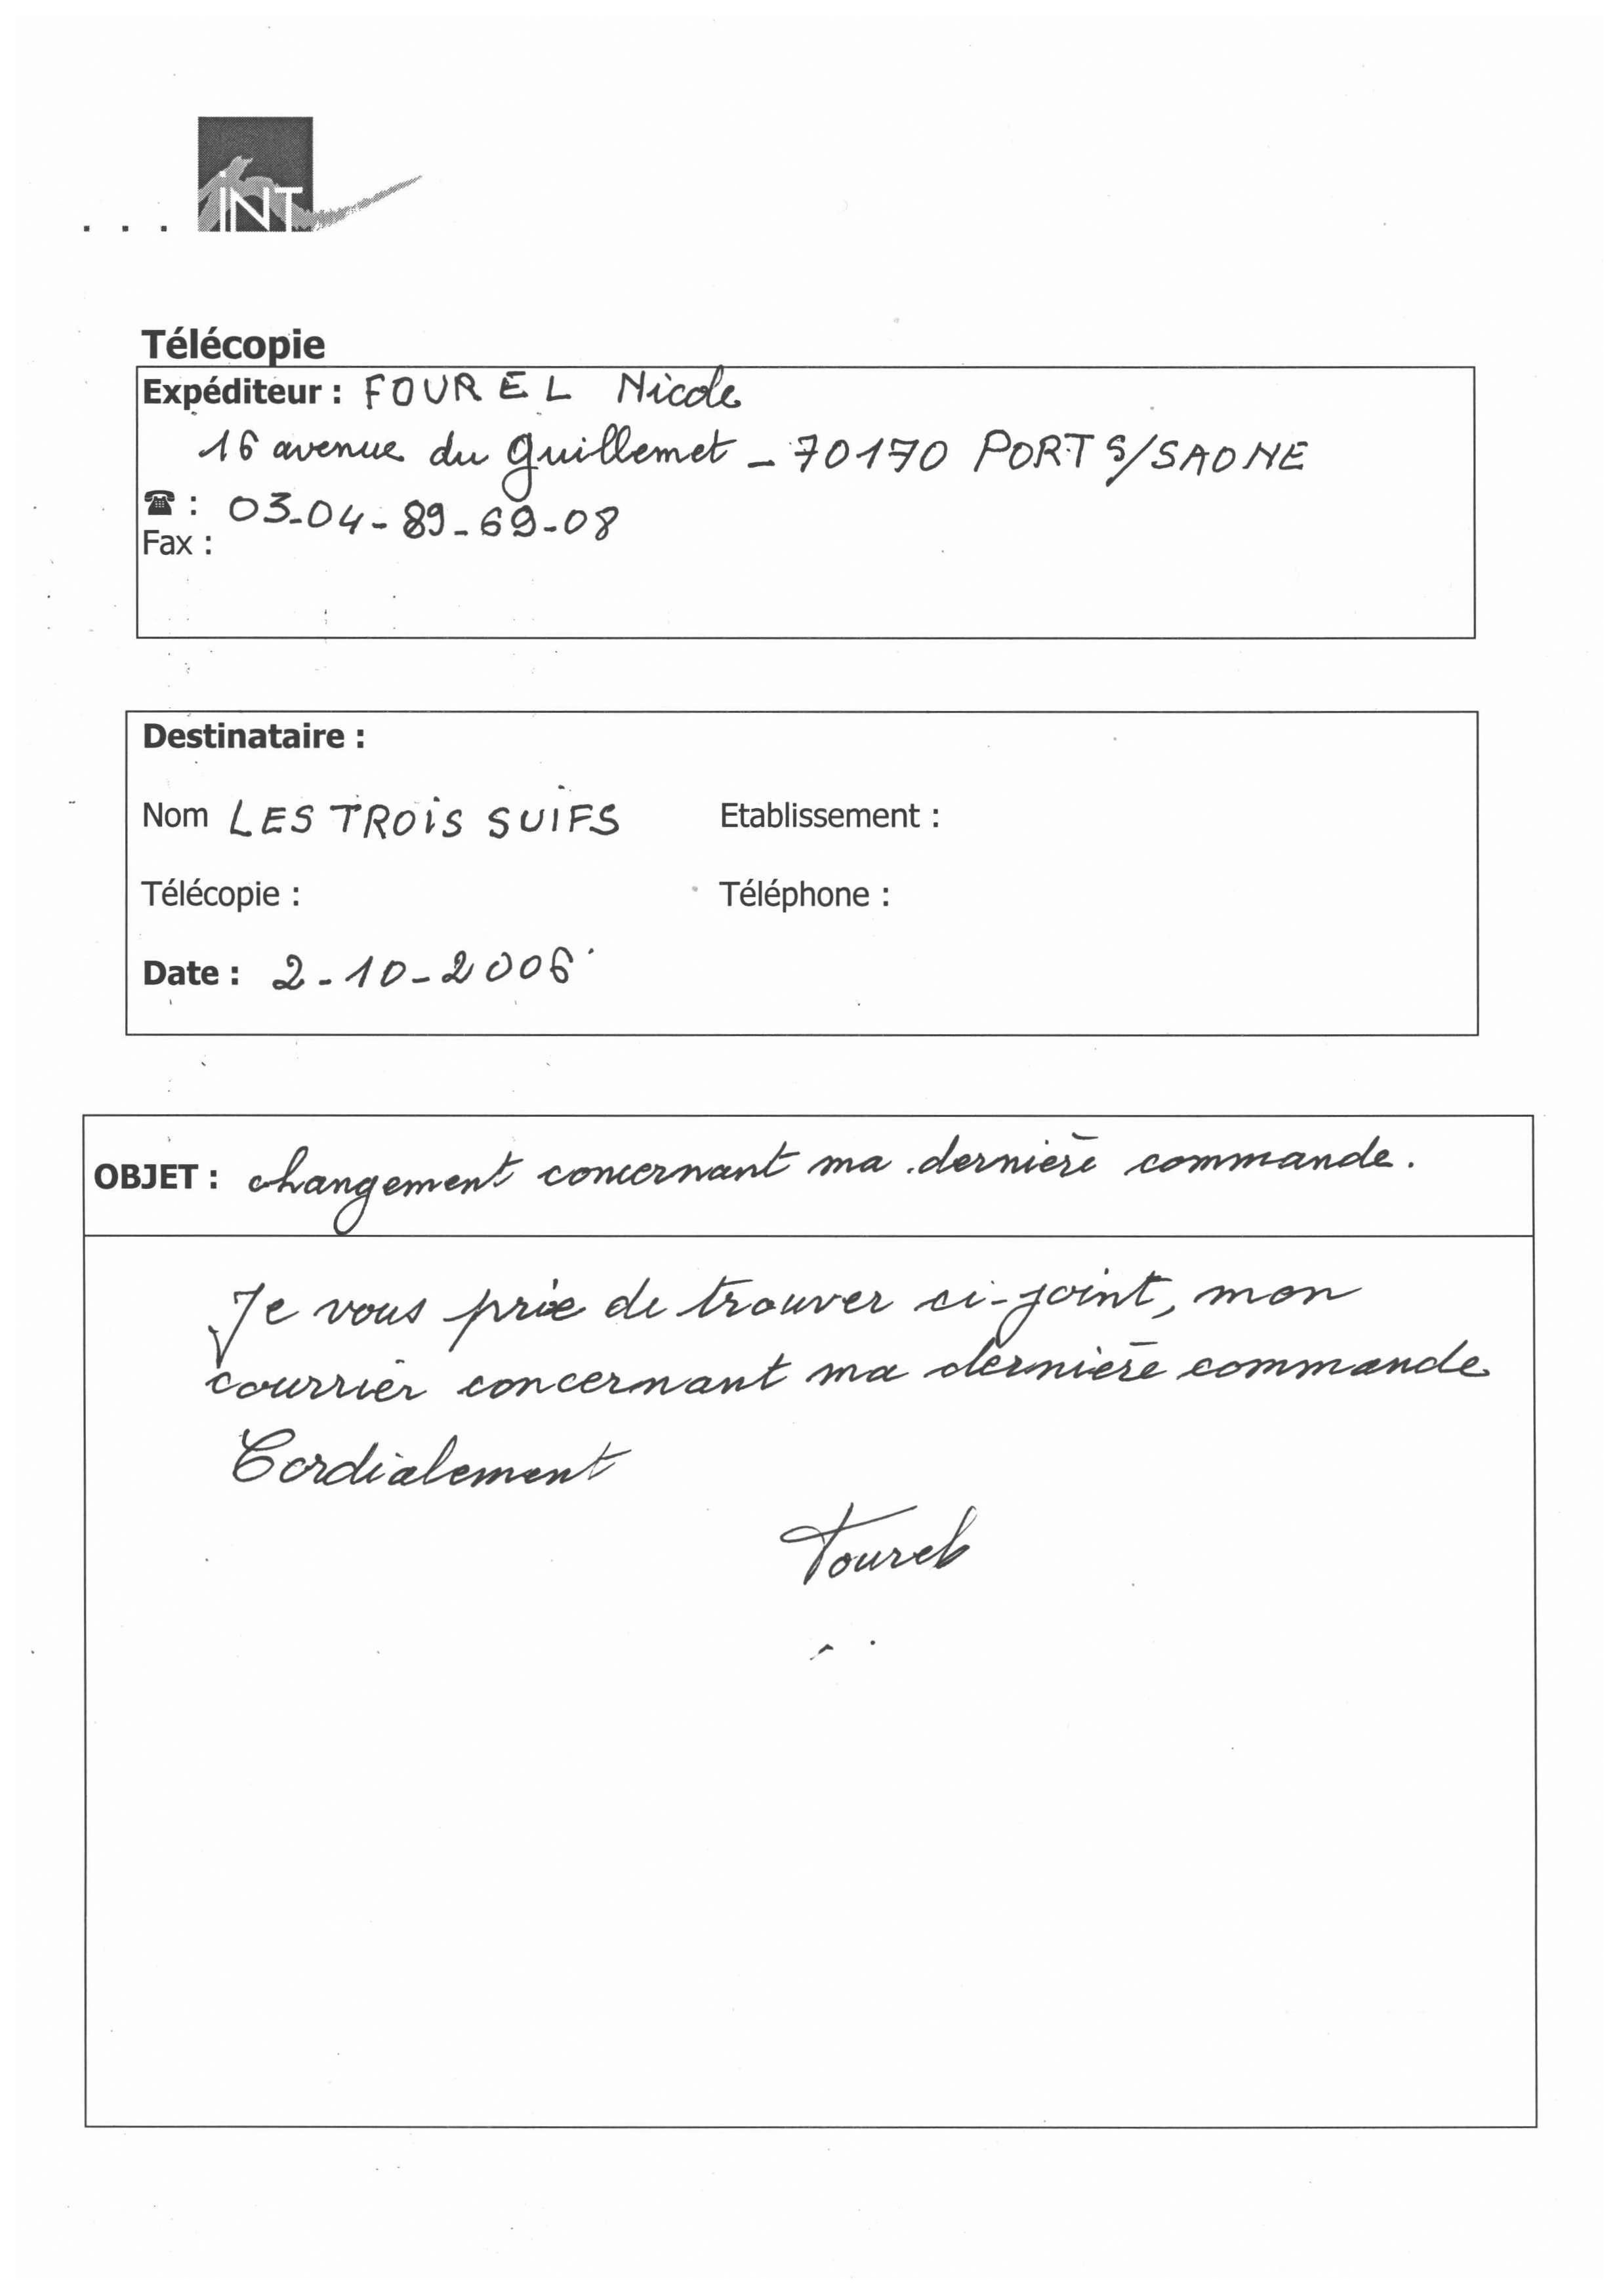 INT
Télécopie
Expéditeur : FOUREL Nicole
16 avenue du guillemet - 70170 PORT S/SAONE
☎ : 03-04-89-69-08
Fax :
Destinataire :
Nom LES TROIS SUIFS Etablissement :
Télécopie : Téléphone :
Date : 2-10-2006
OBJET : changement concernant ma dernière commande.
Je vous prie de trouver ci-joint, mon
courrier concernant ma dernière commande
Cordialement
Fourel